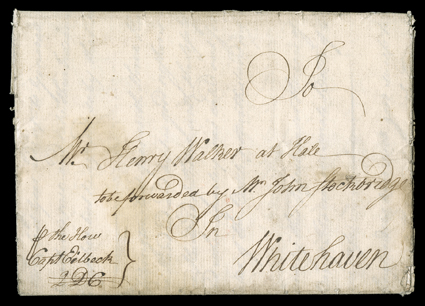 To
Mr. Henry Walker at Hale
to be forwarded by Mr. John Stockbridge
In
Whitehaven
the How
Capt Eilbeck